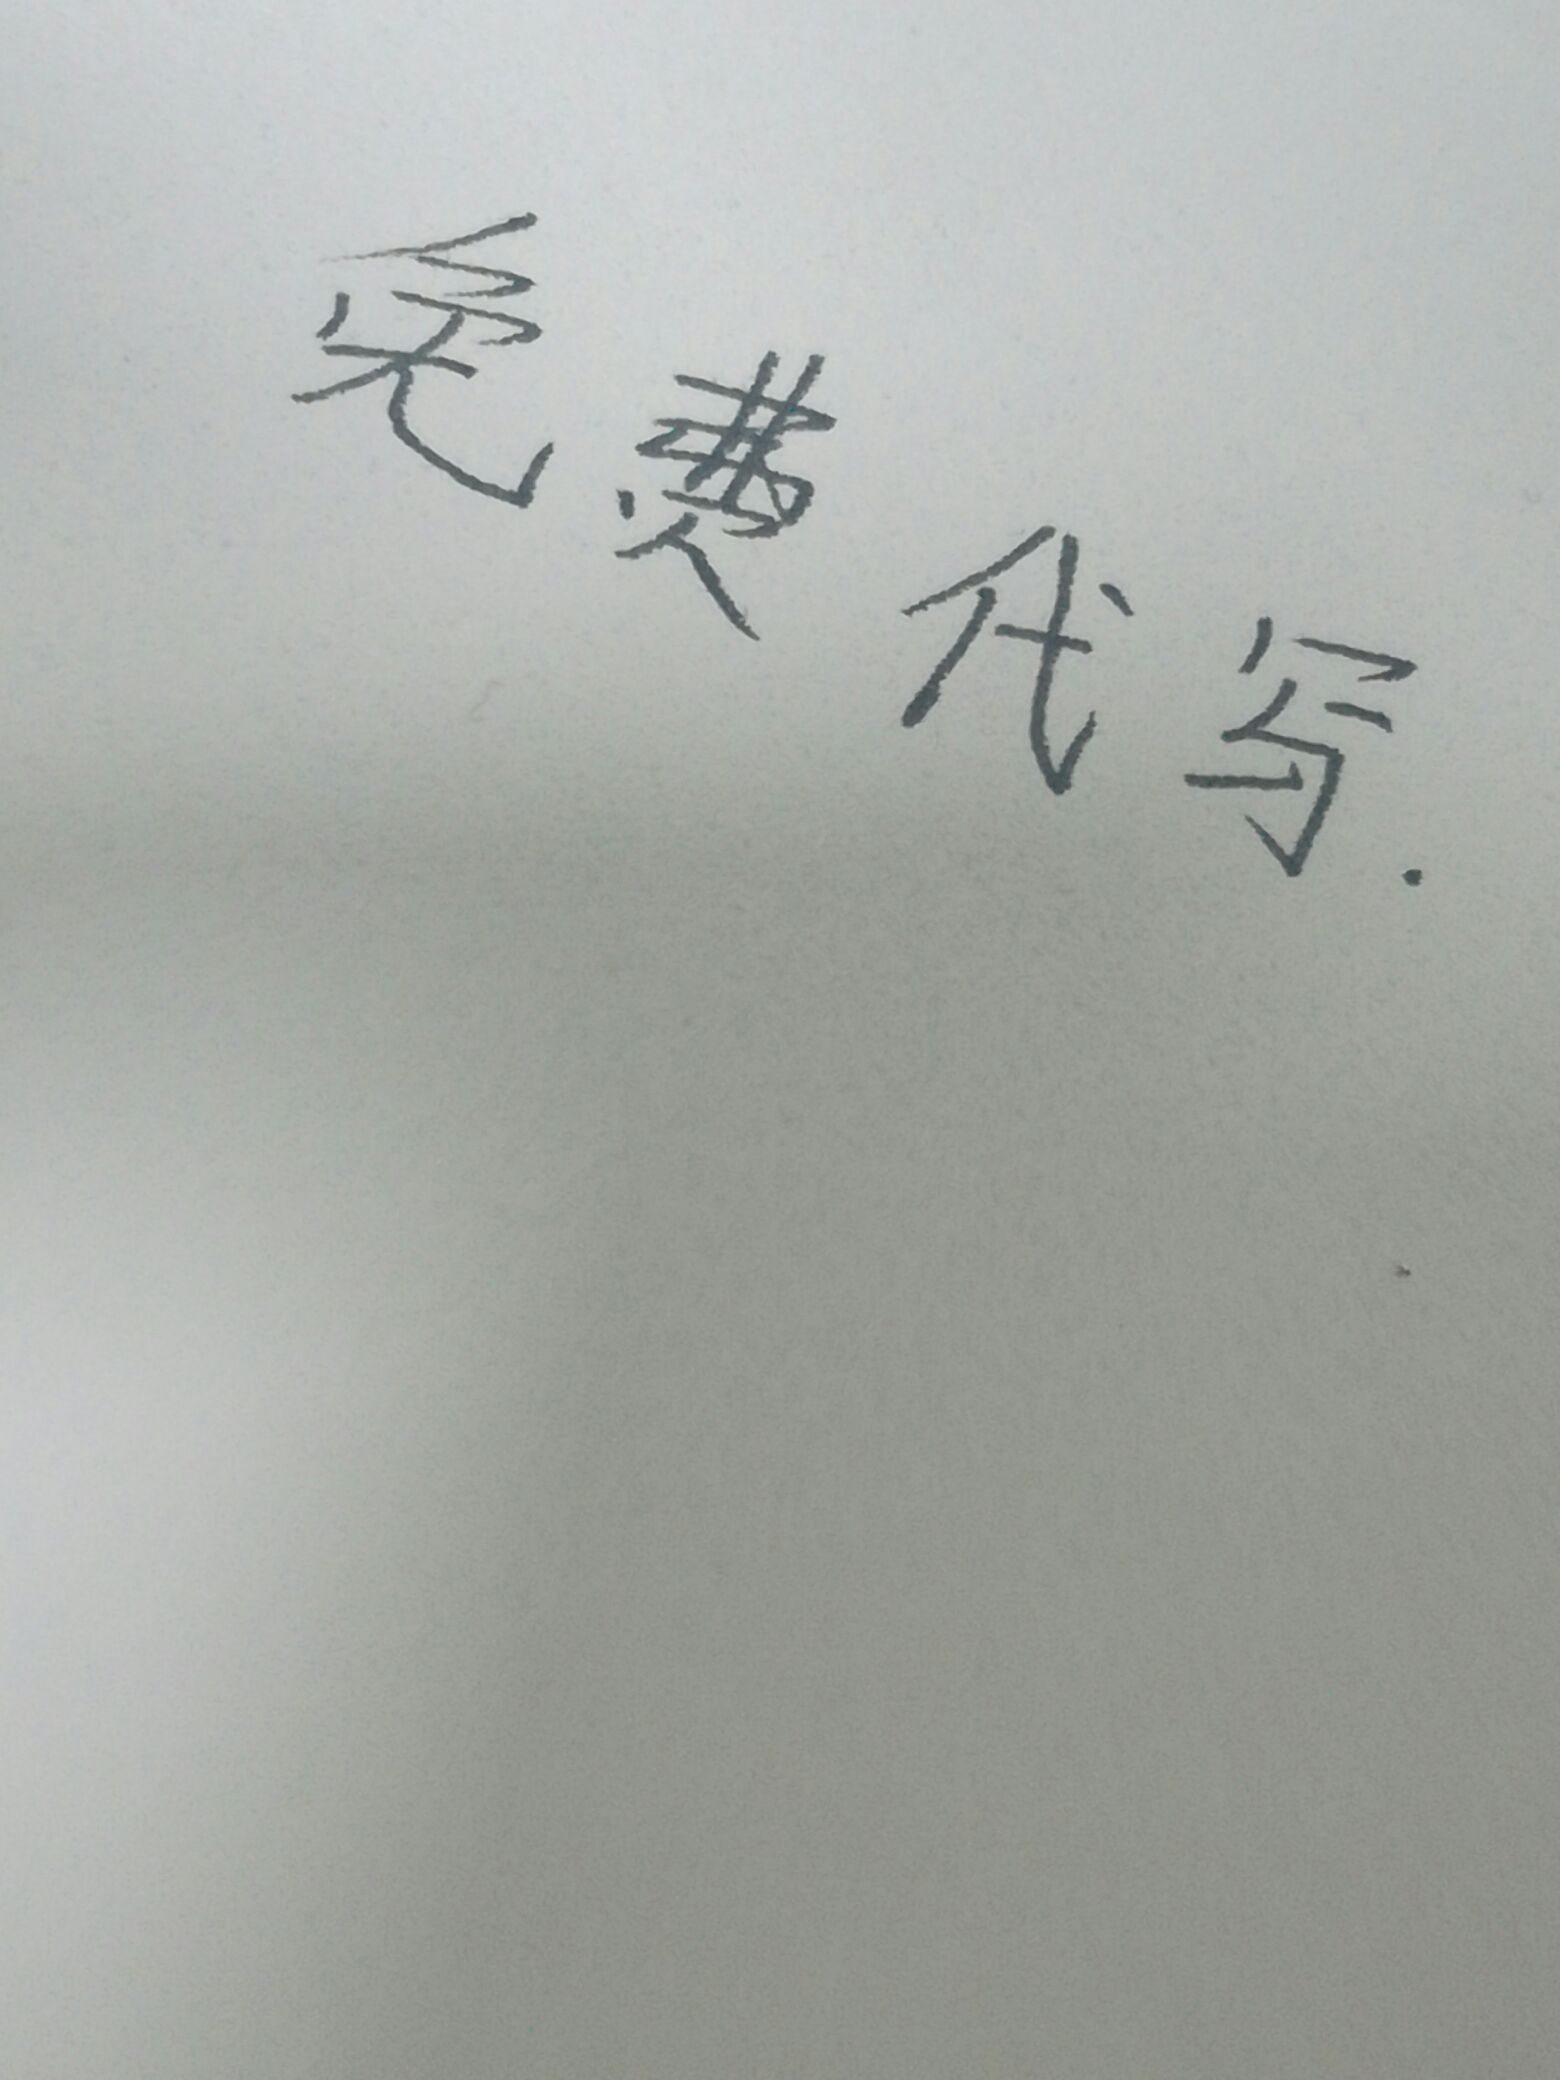 免费代写.